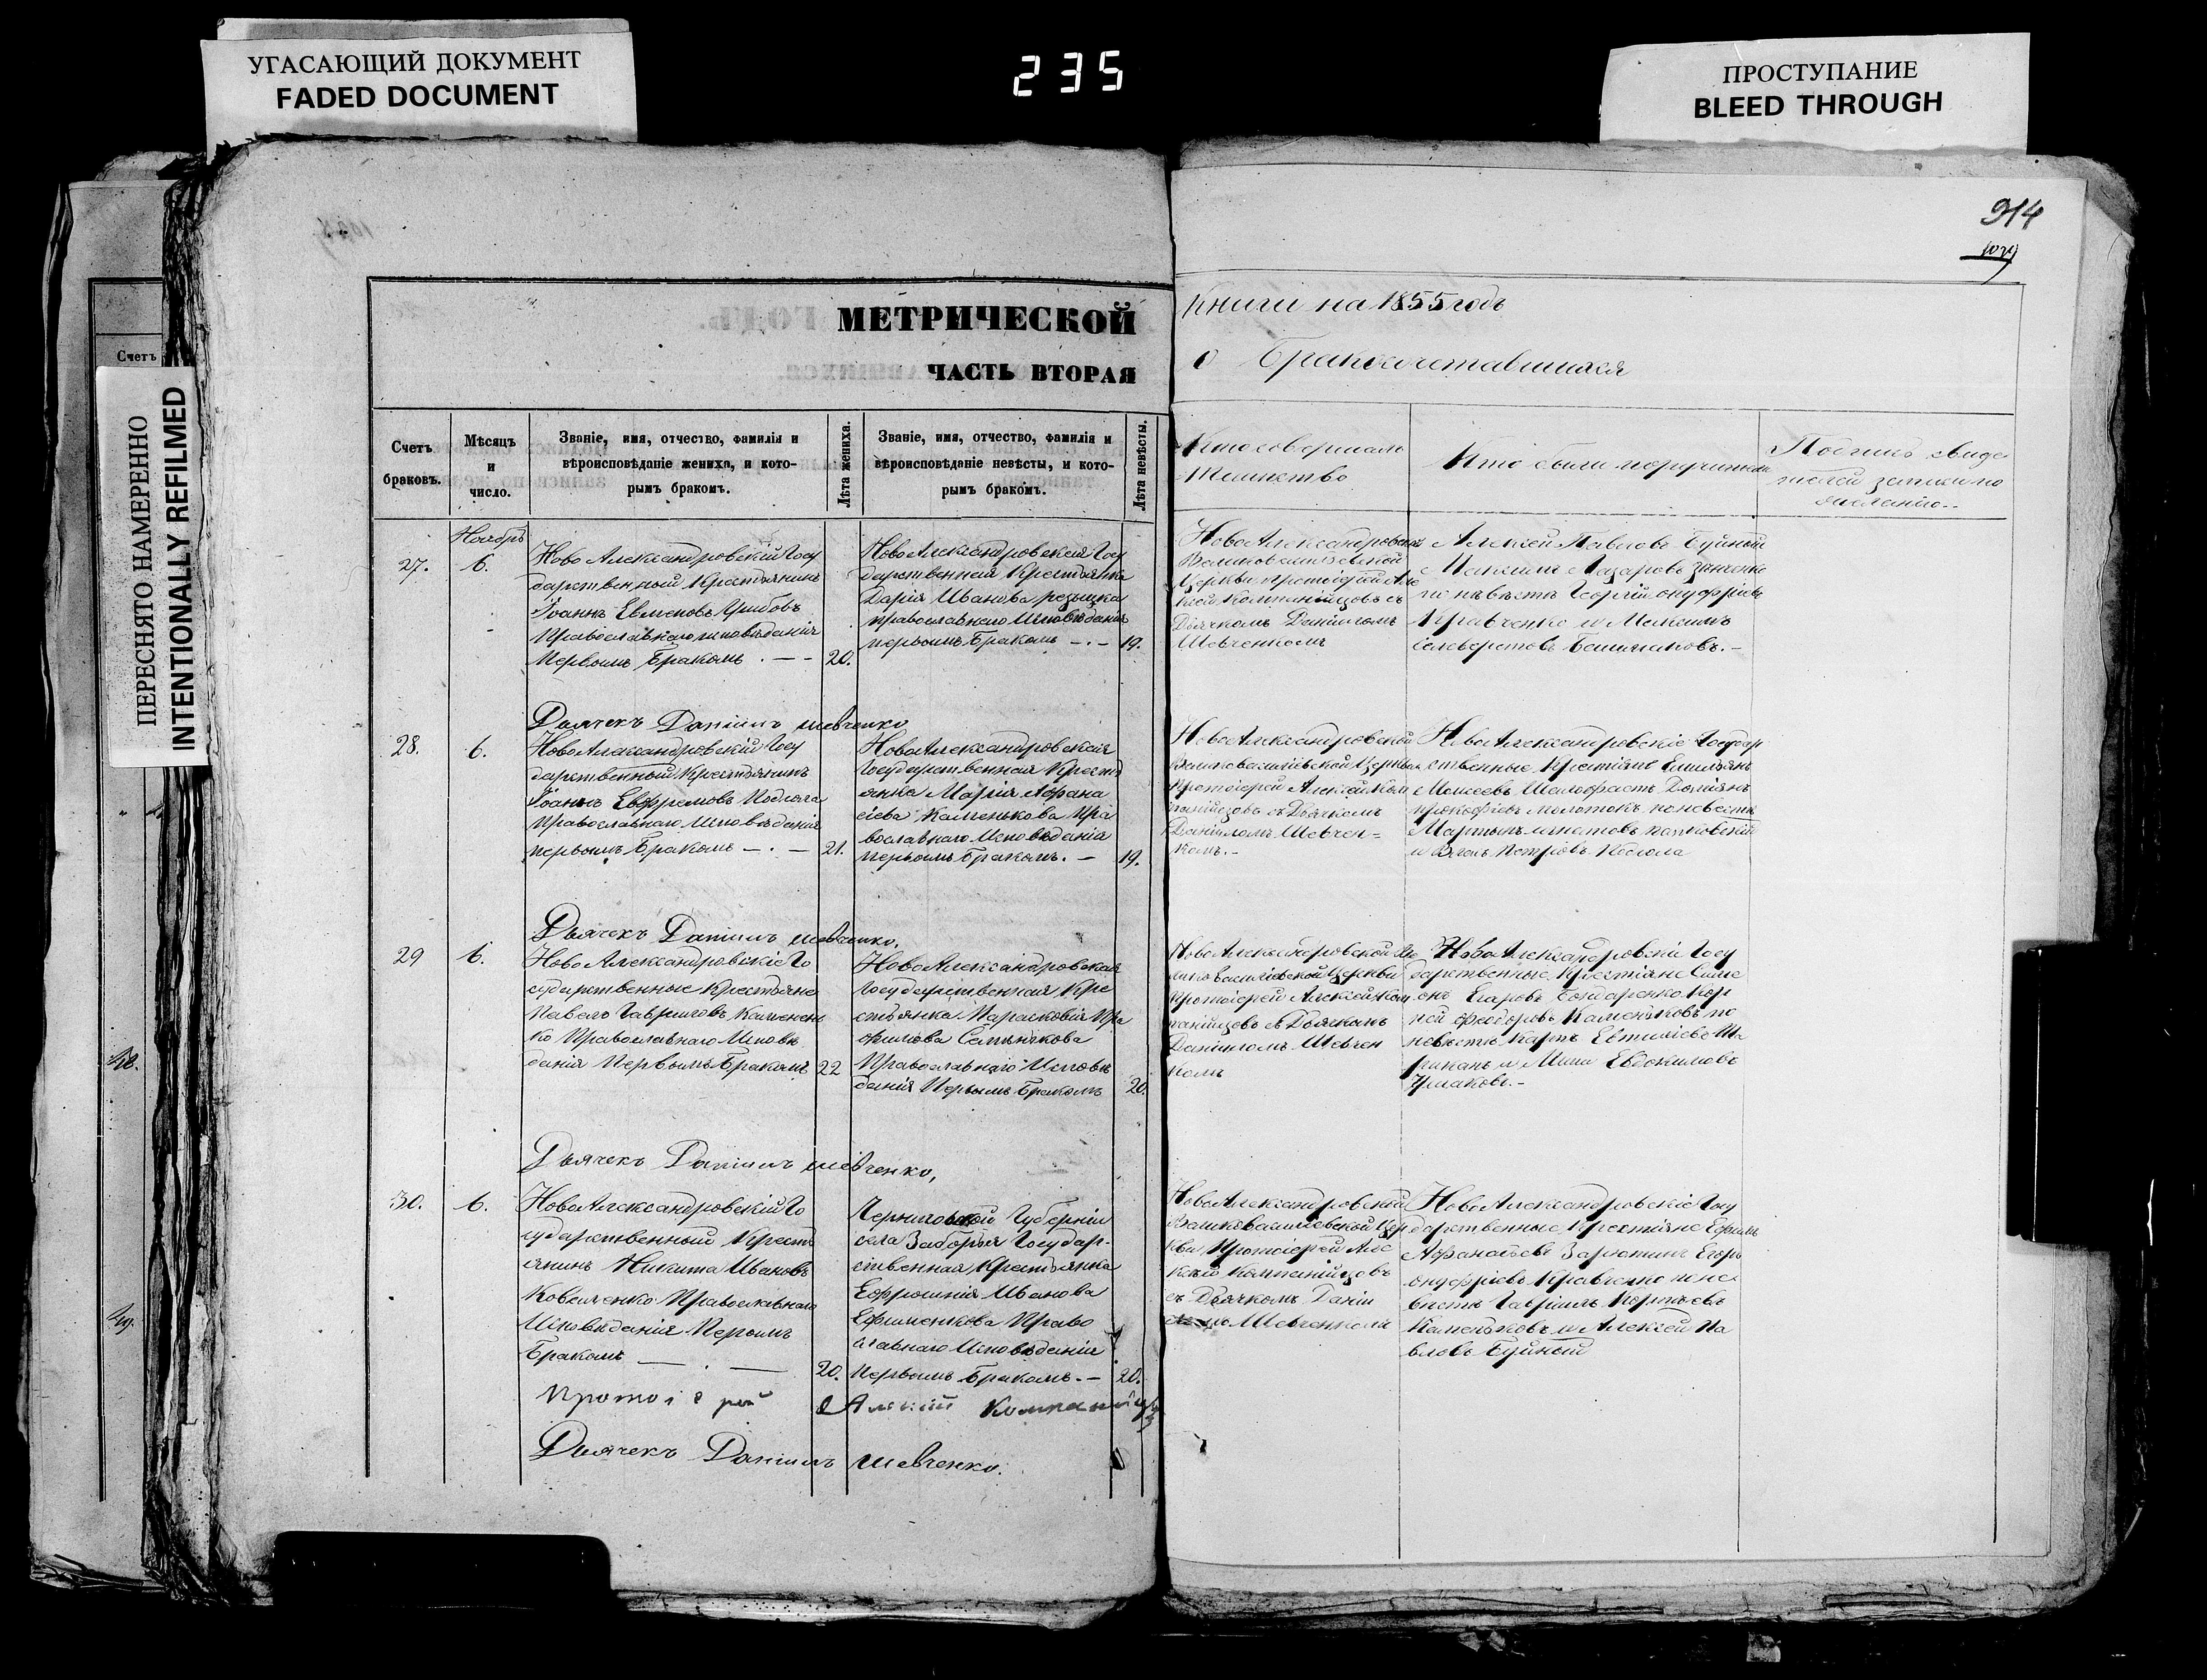 УГАСАЮЩИЙ ДОКУМЕНТ
FADED DOCUMENT
235
ПРОСТУПАНИЕ
BLEED THROUGH
ПЕРЕСНЯТО НАМЕРЕННО
INTENTIONALLY REFILMED
Счетъ
48.
49.
914
1029
МЕТРИЧЕСКОЙ
Книги на 1855 годъ
ЧАСТЬ ВТОРАЯ
о Бракосочетавшихся
Счетъ
браковъ.
Мѣсяцъ
и
число.
Званіе, имя, отчество, фамилія и
вѣроисповѣданіе жениха, и кото-
рымъ бракомъ.
Лѣта жениха.
Званіе, имя, отчество, фамилія и
вѣроисповѣданіе невѣсты, и кото-
рымъ бракомъ.
Лѣта невѣсты.
Кто совершалъ
Таинство
Кто были поручители
Подпись свиде
телей записи по
желанію..
Ноябръ
27.
6.
НовоАлександровскій Госу
дарственный Крестьянинъ
Іоаннъ Евменовъ Грибовъ
Православнаго исповѣданія
Первымъ Бракомъ . — —
20.
НовоАлександровская Госу
дарственная Крестьянка
Дарія Иванова
православнаго Исповѣданія
первымъ Бракомъ —.—
19.
НовоАлександровской
Великовасилевской
Церкви протоіерей Але
ксей Компаніицовъ съ
Дьячкомъ Даніиломъ
Шевченкомъ
Алексей Павловъ Буйный
Лазаровъ
по невѣстѣ Георгій онуфріевъ
Кравченко и Максимъ
селверстовъ
Дьячекъ Даніилъ шевченко
28.
6.
НовоАлександровскій Госу
дарственный Крестьянинъ
Іоаннъ Ефремовъ
Православнаго Исповѣданія
первымъ Бракомъ —.—
21.
НовоАлександровская
Государственная Кресть
янка Марія Афана
сіева Каменькова Пра
вославнаго Исповѣданія
первымъ Бракомъ. —
19.
НовоАлександровской
Великовасилевской Церкви
Протоіерей Алексей Ком
паніицовъ съ Дьячкомъ
Даніиломъ Шевчен=
комъ.—
НовоАлександровскіе Государ
ственные Крестіяне Емельянъ
Моисеевъ
прокофіевъ молотокъ по невестѣ
Мартынъ игнатовъ
и Петровъ
Дьячекъ Даніилъ шевченко,
29
6.
НовоАлександровскіе Го
сударственные Крестьяне
Павелъ Гавриловъ Каменен
ко Православнаго Исповѣ
данія Первымъ Бракомъ
22
НовоАлександровская
Государственная Кре
стьянка Парасковія
Семьнікова
Православнаго Исповѣ
данія Первымъ Бракомъ
20.
НовоАлександровской Ве
ликовасилевской Церкви
Протоіерей Алексей Ком
паніицовъ съ Дьячкомъ
Даніиломъ Шевчен
комъ
НовоАлександровскіи Госу
дарственные Крестіяне Симе
онъ Егоровъ Бондаренко Кор
ней Федоровъ Каменьковъ по
невѣстѣ Карпъ
и Евдокимовъ
Дьячекъ Даніилъ шевченко,
30.
6.
НовоАлександровскій Го
сударственный Кресть
янинъ Никита Ивановъ
Коваленко Православнаго
Исповѣданія Перымъ
Бракомъ — . —
20.
Черниговской Губерніи
села Заборья Государ-
ственная Крестьянка
Ефросинія Иванова
Ефименкова Право
славнаго Исповѣданія
Первымъ Бракомъ.—
20.
НовоАлександровской
Великовасилевской Цер
кви, Протоіерей Але
ксей Компаніицовъ
съ Дьячкомъ Даніи
Шевченкомъ
НовоАлександровскіе Госу
дарственные Крестіяне Ефимъ
Афанасьевъ Егоръ
онуфріевъ Кравченко по не
вестѣ Гавріилъ
Каменьковъ и Алексей Па
вловъ Буйный
Протоіерей Алексій Компаніицовъ
Дьячекъ Даніилъ шевченко.